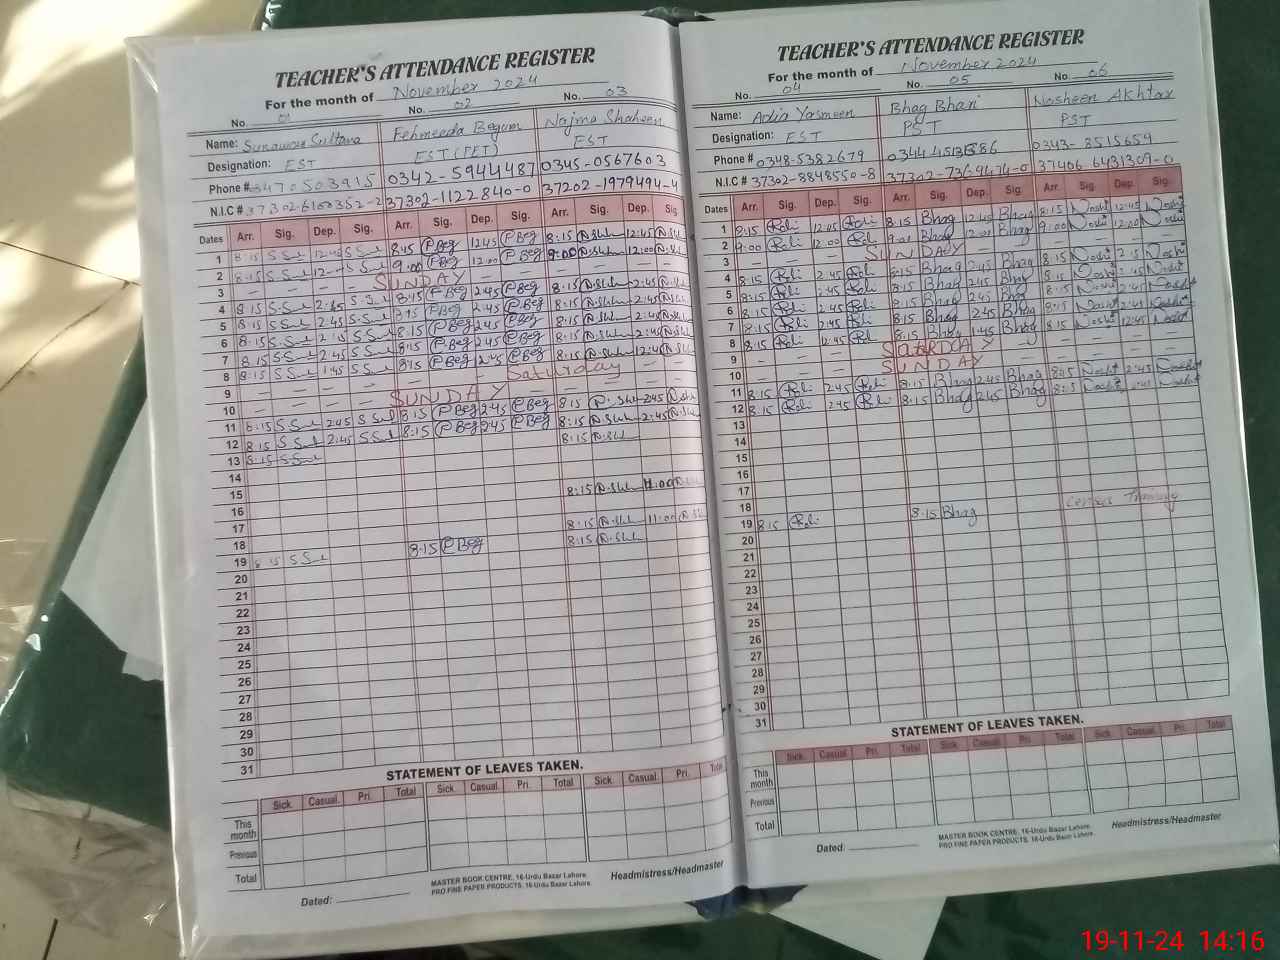 TEACHER'S ATTENDANCE REGISTER
For the month of November 2024
No. 01 No. 02 No. 03
Name: Sunawar Sultana Fehmeeda Begum Najma Shaheen
Designation: EST EST (PET) EST
Phone # 0342-5944487 0345-0567603
N.I.C # 37302-1122840-0 37202-1979494-4
Dates Arr. Sig. Dep. Sig. Arr. Sig. Dep. Sig. Arr. Sig. Dep. Sig.
1 8:15 12:45 8:45 P Beg 12:45 P Beg 8:15 N.Sh 12:45 N.Sh
2 8:15 12:45 9:00 P Beg 12:00 P Beg 9:00 N.Sh 12:00 N.Sh
3 — — — SUNDAY — — —
4 8:15 2:45 8:15 P Beg 2:45 P Beg 8:15 N.Sh 2:45 N.Sh
5 8:15 2:45 8:15 P Beg 2:45 P Beg 8:15 N.Sh 2:45 N.Sh
6 8:15 2:45 8:15 P Beg 2:45 P Beg 8:15 N.Sh 2:45 N.Sh
7 8:15 2:45 8:15 P Beg 2:45 P Beg 8:15 N.Sh 2:45 N.Sh
8 8:15 1:45 8:15 P Beg 2:45 P Beg 8:15 N.Sh 12:45 N.Sh
9 — — — Saturday
10 — — — SUNDAY — — —
11 8:15 2:45 8:15 P Beg 2:45 P Beg 8:15 N.Sh 2:45
12 8:15 2:45 8:15 P Beg 2:45 P Beg 8:15 N.Sh 2:45
13 8:15 8:15 N.Sh
14
15
16 8:15 N.Sh 11:00
17
18 8:15 N.Sh 11:00
19 8:15 8:15 P Beg 8:15 N.Sh
20
21
22
23
24
25
26
27
28
29
30
31
STATEMENT OF LEAVES TAKEN.
Sick. Casual. Pri. Total Sick. Casual. Pri. Total Sick. Casual. Pri. Total
This month
Previous
Total
Dated:
MASTER BOOK CENTRE, 16-Urdu Bazar Lahore.
PRO FINE PAPER PRODUCTS. 16-Urdu Bazar Lahore.
Headmistress/Headmaster
TEACHER'S ATTENDANCE REGISTER
For the month of November 2024
No. 04 No. 05 No. 06
Name: Adia Yasmeen Bhag Bhari Nosheen Akhtar
Designation: EST PST PST
Phone # 0348-5382679 0343-8515659
N.I.C # 37302-8848550-8 37302-7369474-0 37406 6431309-0
Dates Arr. Sig. Dep. Sig. Arr. Sig. Dep. Sig. Arr. Sig. Dep. Sig.
1 8:15 12:45 8:15 Bhag 12:45 Bhag 8:15 Noshi 12:45 Noshi
2 9:00 12:00 9:00 Bhag 12:00 Bhag 9:00 Noshi 12:00 Noshi
3 — — — SUNDAY — — —
4 8:15 2:45 8:15 Bhag 2:45 Bhag 8:15 Noshi 2:15 Noshi
5 8:15 2:45 8:15 Bhag 2:45 Bhag 8:15 Noshi 2:45 Noshi
6 8:15 2:45 8:15 Bhag 2:45 Bhag 8:15 Noshi 2:45 Noshi
7 8:15 2:45 8:15 Bhag 2:45 Bhag 8:15 Noshi 2:45
8 8:15 12:45 8:15 Bhag 1:45 Bhag 8:15 Noshi 12:45
9 — — — SATURDAY — — —
10 — — — SUNDAY — — —
11 8:15 2:45 8:15 Bhag 2:45 Bhag 8:45 Noshi 2:45
12 8:15 2:45 8:15 Bhag 2:45 Bhag 8:15 Noshi 2:45
13
14
15
16
17
18 Census Training
19 8:15 8:15 Bhag
20
21
22
23
24
25
26
27
28
29
30
31
STATEMENT OF LEAVES TAKEN.
Sick. Casual. Pri. Total Sick. Casual. Pri. Total Sick. Casual. Pri. Total
This month
Previous
Total
Dated:
MASTER BOOK CENTRE, 16-Urdu Bazar Lahore.
PRO FINE PAPER PRODUCTS. 16-Urdu Bazar Lahore.
Headmistress/Headmaster
19-11-24 14:16